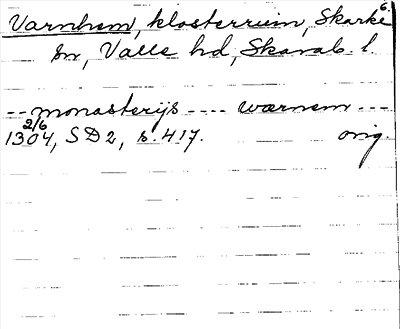 Varnhem, klosterruin, Skarke 6.
sn, Valle hd, Skarab. l.
-- monasterijs ---- wærnem ---
2/6
1304, SD 2, s. 417. orig.